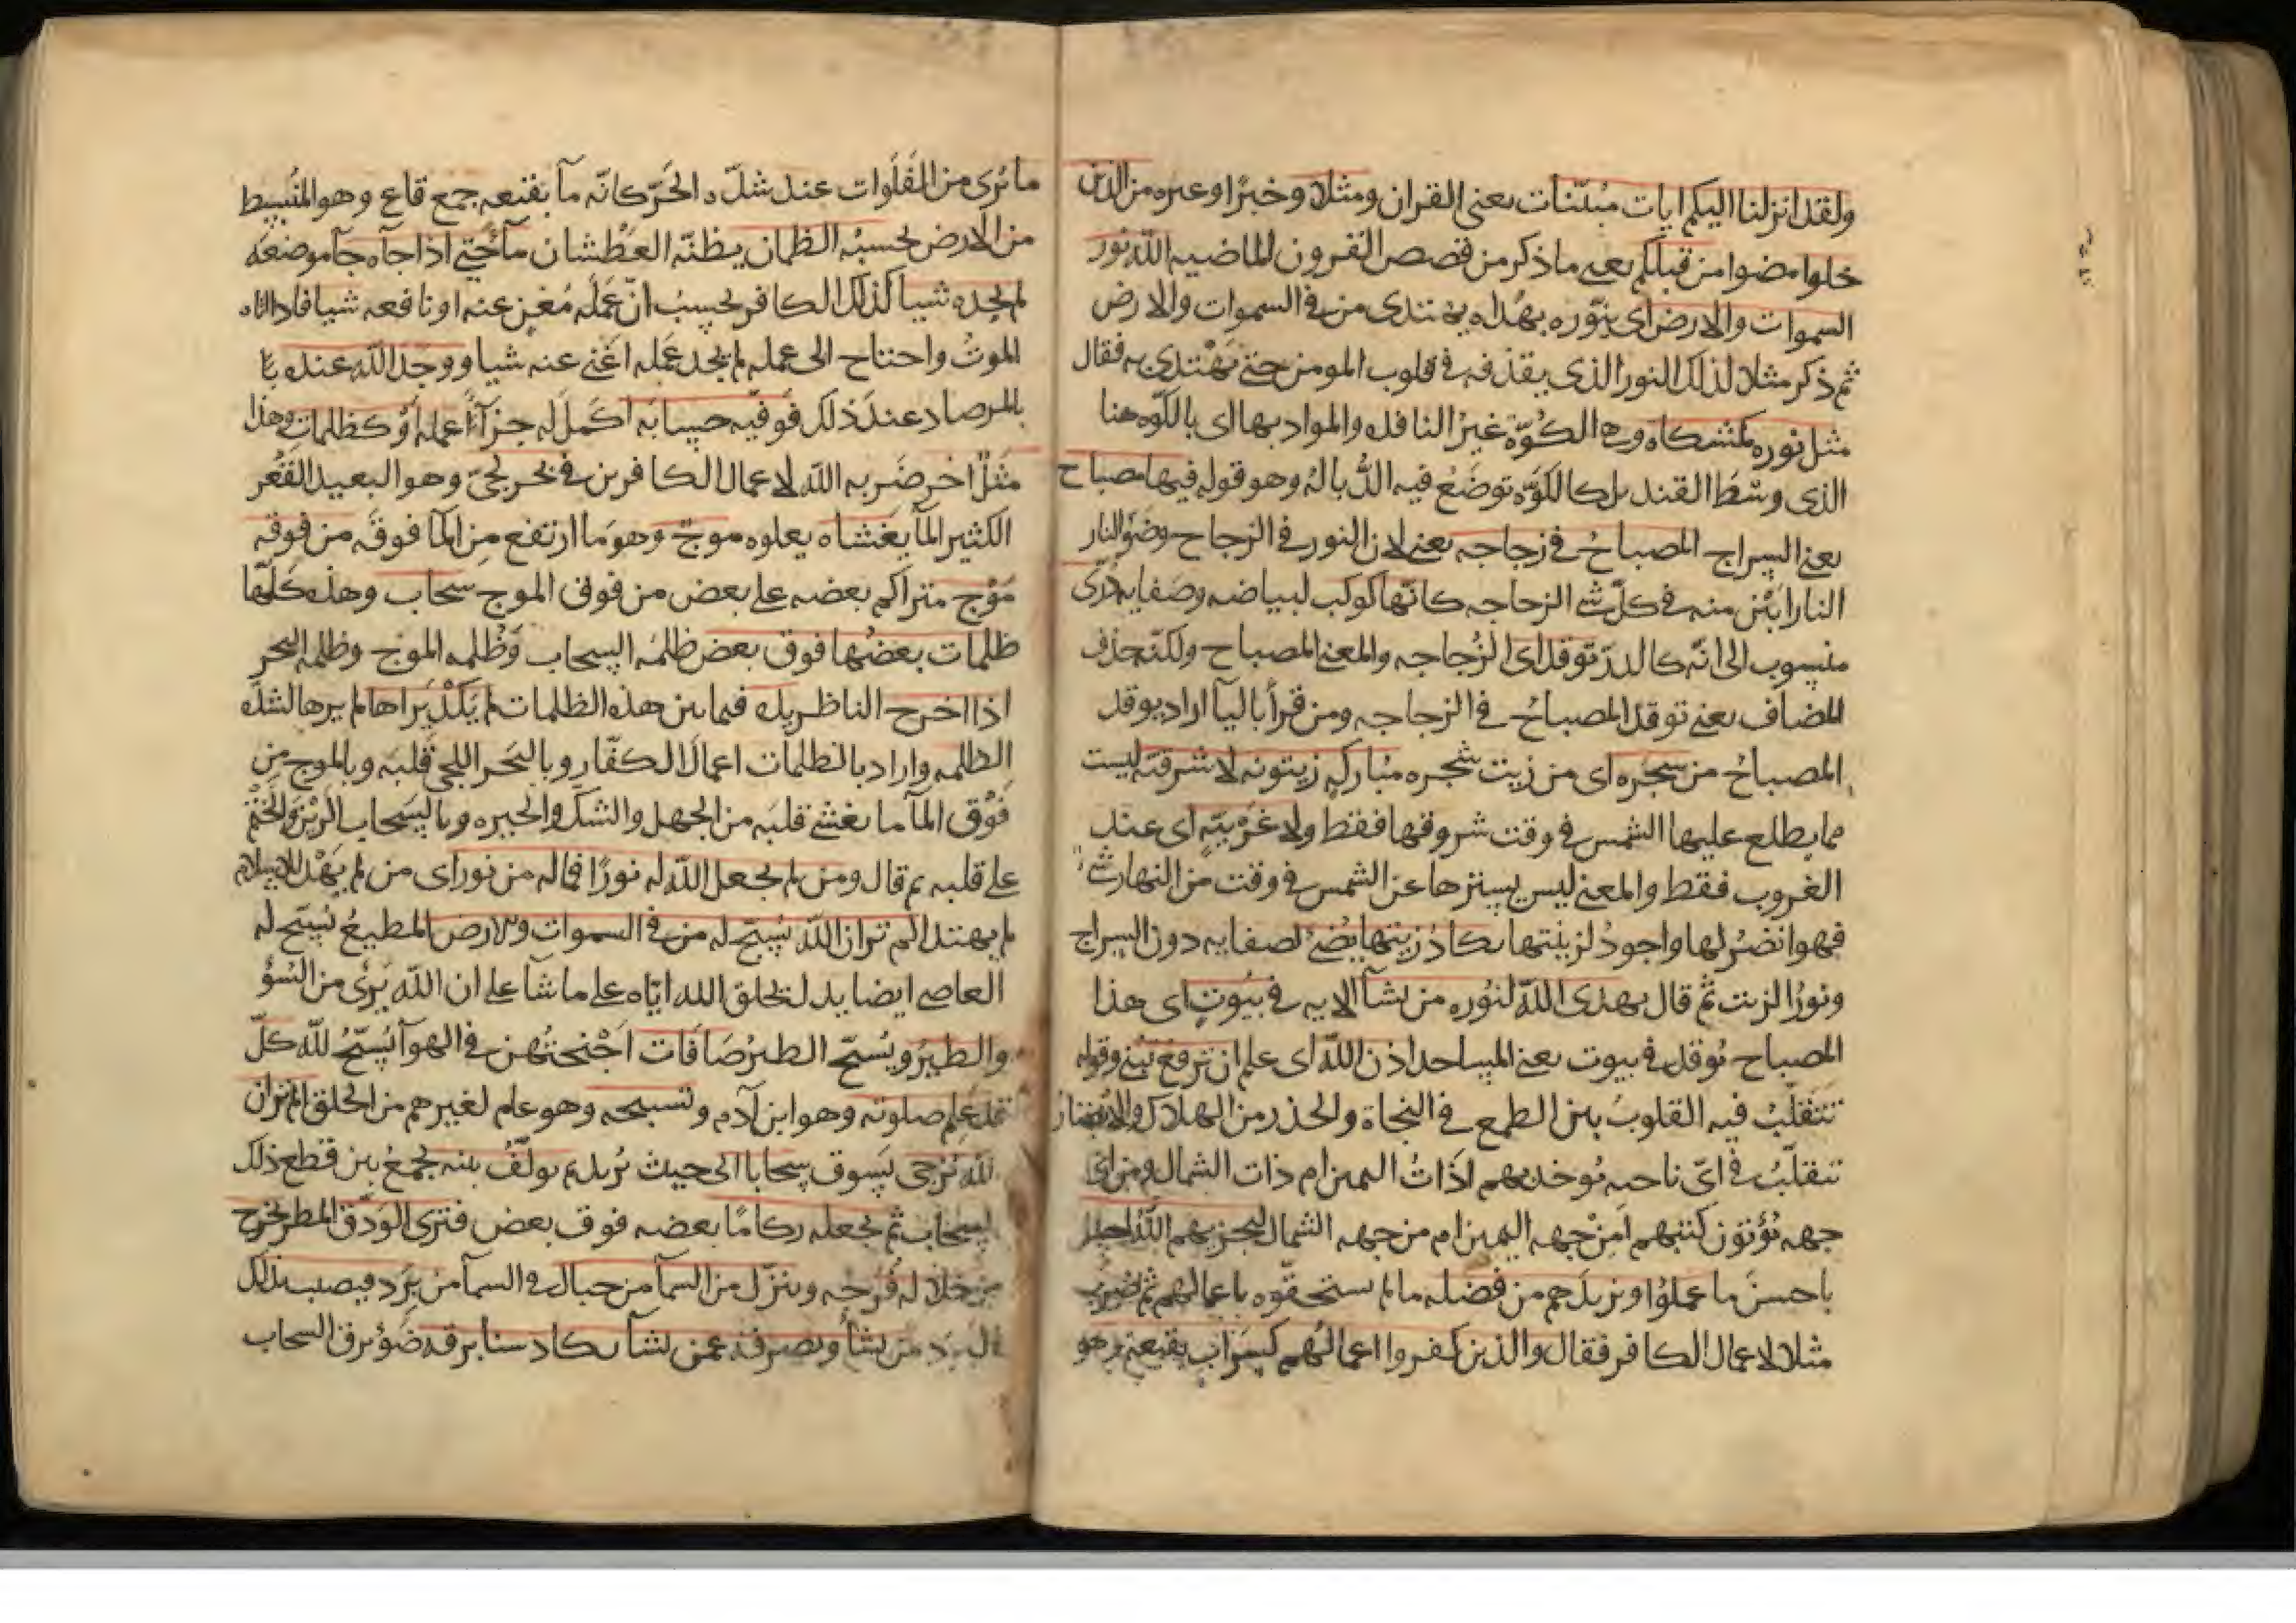 ولقد انزلنا اليكم ايات مبينات يعنى القران ومثلا وخبرا وعبره من الذين
خلوا مضوا من قبلكم يعنى ما ذكر من قصص القرون الماضيه الله نور
السموات والارض اى بنوره بهداه يهتدى من فى السموات والارض
ثم ذكر مثلا لذلك النور الذى يقذفه فى قلوب المومنين حتى يهتدى به فقال
مثل نوره كمشكاه وهى الكوة غير النافده والمراد بها اى بالكوه هنا
الذى وسط القنديل كالكوه توضع فيه الذبالة وهو قوله فيها مصباح
يعنى السراج المصباح فى زجاجه يعنى لان النور فى الزجاج وضو النار
النار ابين منه فى كل شى الزجاجه كانها كوكب لبياضه وصفايه درى
منسوب الى انه كالدر توقد اى الزجاجه والمعنى المصباح ولكنه حذف
المضاف يعنى توقد المصباح فى الزجاجه ومن قرأ باليا اراد يوقد
المصباح من شجره اى من زيت شجره مباركه زيتونه لا شرقيه ليست
مما يطلع عليها الشمس فى وقت شروقها فقط ولا غربيه اى عند
الغروب فقط والمعنى ليس يسترها عن الشمس فى وقت من النهار شى
فهو انضر لها واجود لزيتها يكاد زيتها يضى لصفايه دون السراج
ونور الزيت ثم قال يهدى الله لنوره من يشآ الايه فى بيوت اى هذا
المصباح توقد فى بيوت يعنى المساجد اذن الله اى علم ان ترفع تبنى وقوله
تتقلب فيه القلوب بين الطمع فى النجاة والحذر من الهلاك والابصار
تتقلب فى اى ناحيه يوخذ بهم اذات اليمين ام ذات الشمال ومن اى
جهه يؤتون كتبهم امن جهه اليمين ام من جهه الشمال ليجزيهم الله احسن
باحسن ما عملوا ويزيدهم من فضله ما لم يستحقوه باعمالهم ثم ضرب
مثلا لاعمال الكافر فقال والذين كفروا اعمالهم كسراب بقيعه وهو
ما يرى من الفلوات عند شدة الحر كانه مآ بقيعه جمع قاع وهو المنبسط
من الارض يحسبه الظمان يظنه العطشان مآ حتى اذا جآه جآ موضعه
لم يجده شيا كذلك الكافر يحسب ان عمله مغن عنه او نافعه شيا فاذا اتاه
الموت واحتاج الى عمله لم يجد عمله اغنى عنه شيا ووجد الله عنده يا
بالمرصاد عند ذلك فوفيه حسابه اكمل له جزآ عمله او كظلمات وهذا
مثل اخر ضربه الله لاعمال الكافرين فى بحر لجى وهو البعيد القعر
الكثير المآ يغشاه يعلوه موج وهو ما ارتفع من المآ فوقه من فوقه
موج متراكم بعضه على بعض من فوق الموج سحاب وهذه كلها
ظلمات بعضها فوق بعض ظلمه السحاب وظلمه الموج وظلمه البحر
اذا اخرج الناظر يده فيما بين هذه الظلمات لم يكد يراها لم يرها لشده
الظلمه واراد بالظلمات اعمال الكفار وبالبحر اللجى قلبه وبالموج من
فوق المآ ما يغشى قلبه من الجهل والشك والحيره وبالسحاب الرين والختم
على قلبه ثم قال ومن لم يجعل الله له نورا فما له من نور اى من لم يهد للاسلام
لم يهتد الم تر ان الله يسبح له من فى السموات والارض المطيع يسبح له
العاصى ايضا يدل تخلق الله اياه على ما شا على ان الله برى من السؤ
والطير ويسبح الطير صافات اجنحتهن فى الهوآ يسبح لله كل
قد علم صلوته وهو ابن آدم وتسبيحه وهو عام لغيرهم من الخلق الم تر ان
الله يزجى يسوق سحابا الى حيث يريد ثم يولف بينه يجمع بين قطع ذلك
السحاب ثم يجعله ركاما بعضه فوق بعض فترى الودق المطر يخرج
من خلاله فرجه وينزل من السمآ من جبال فى السمآ من برد فيصيب بذلك
البرد من يشآ ويصرفه عمن يشآ يكاد سنا برقه ضؤ برق السحاب